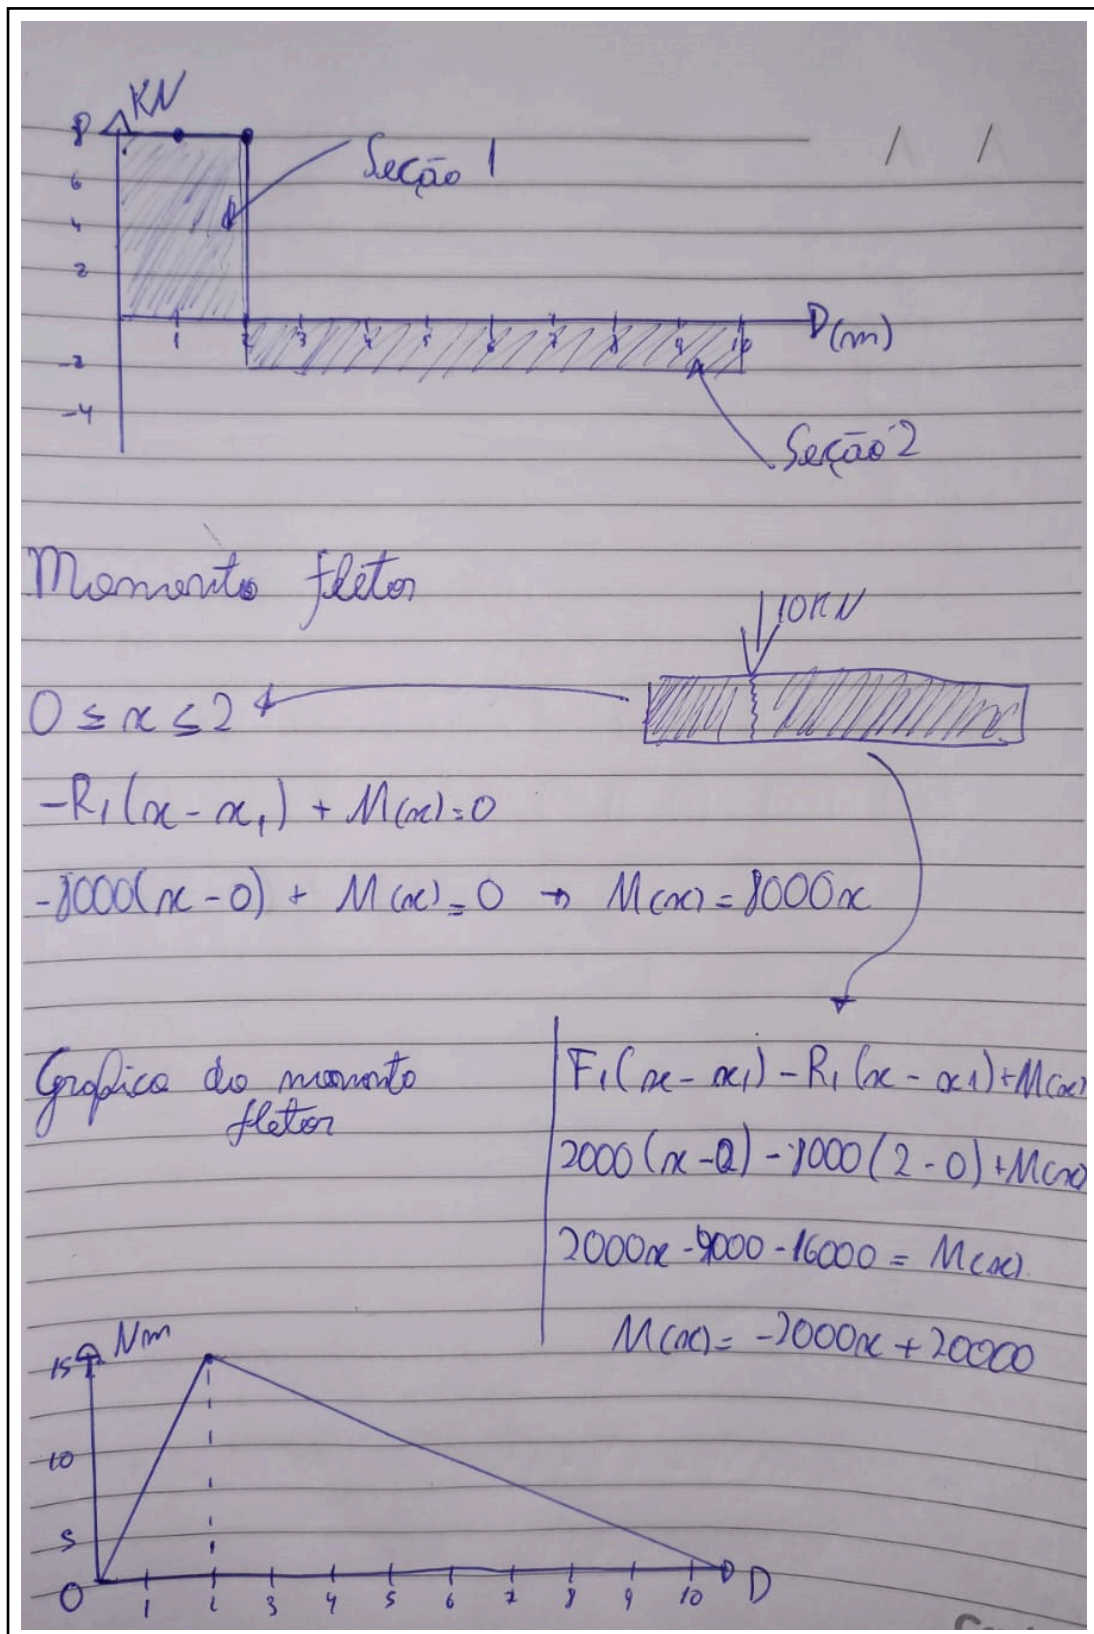 KN
8
6
4
2
-2
-4
1 2 3 4 5 6 7 8 9 10
D(m)
Seção 1
Seção 2
/ /
Momento fletor
10KN
0 ≤ x ≤ 2
-R1(x - x1) + M(x) = 0
-8000(x - 0) + M(x) = 0 → M(x) = 8000x
Grafico do momento
fletor
F1(x - x1) - R1(x - x1) + M(x)
2000(x - 2) - 8000(2 - 0) + M(x)
2000x - 4000 - 16000 = M(x)
M(x) = -2000x + 20000
Nm
15
10
5
0
1 2 3 4 5 6 7 8 9 10 D